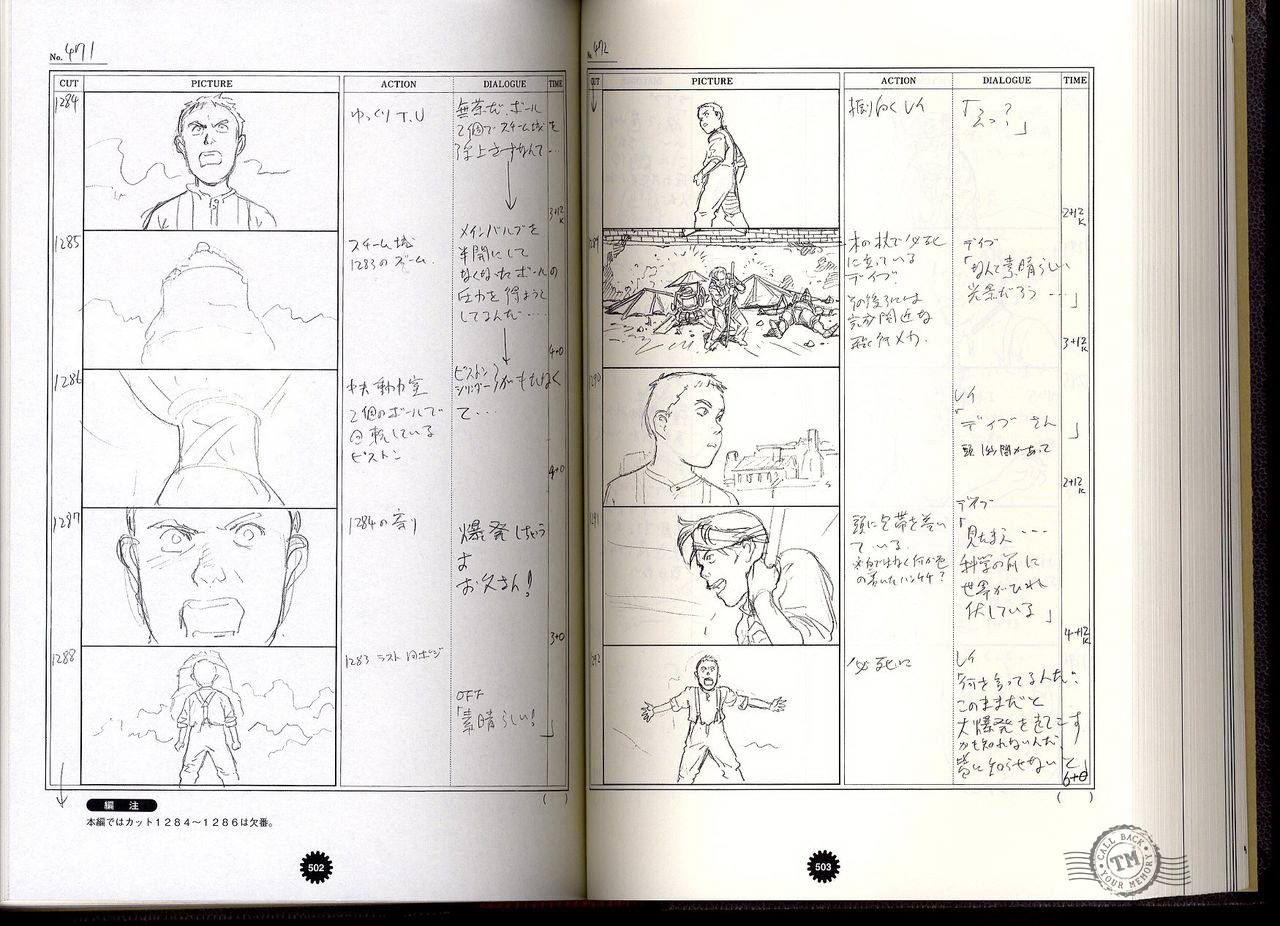 No. 471
CUT PICTURE ACTION DIALOGUE TIME
1284
ゆっくり T.U
無茶だ、ボール
2個でスチーム城を
浮上させるなんて…
3+12
K
1285
スチーム城
1283のズーム
メインバルブを
半開にして
なくなったボールの
圧力を得ようと
してるんだ…
4+0
1286
中央動力室
2個のボールで
回転している
ピストン
ピストン
シリンダーがもたなく
て…
4+0
1287
1284の寄り
爆発しちゃう
よ
お父さん!
3+0
1288
1283 ラスト同ポジ
OFF
「素晴らしい!」
編 注
本編ではカット1284〜1286は欠番。
502
No. 472
CUT PICTURE ACTION DIALOGUE TIME
振り向くレイ
「えっ?」
2+12
K
1289
木の杖で必死
に立っている
デイブ
その後ろには
デイブ
「なんて素晴らしい
光景だろう…」
3+12
K
1290
レイ
「デイブさん」
2+12
K
1291
頭に包帯を巻い
ている
デイブ
「見たまえ…
科学の前に
世界がひれ
伏している」
4+12
K
1292
必死に
レイ
「何を言ってるんだ!
このままだと
大爆発をきてこす
かも知れないんだ、
皆に知らせないと」
6+0
503
CALL BACK
TM
YOUR MEMORY